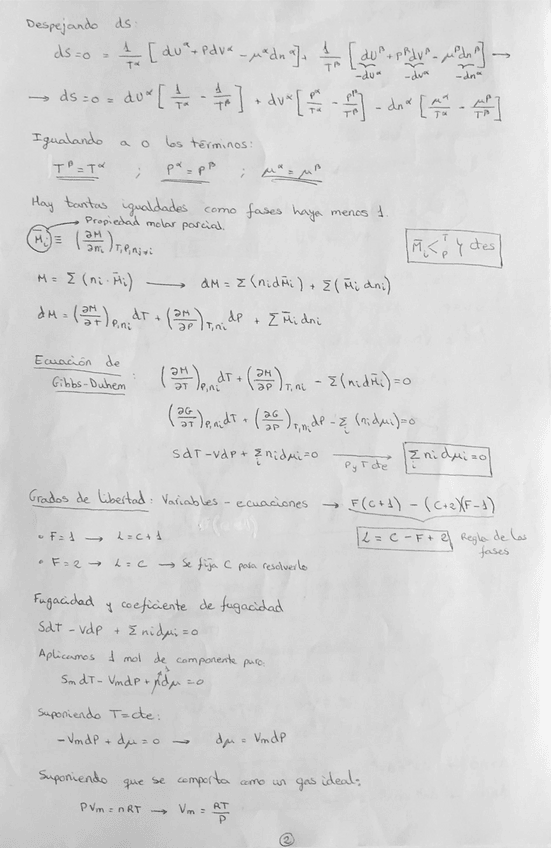 Despejando dS:
dS=0 = 1/T^α [dU^α + PdV^α - μ^α dn^α] + 1/T^β [dU^β + P^β dV^β - μ^β dn^β] →
-dU^α -dV^α -dn^α
→ dS=0 = dU^α [1/T^α - 1/T^β] + dV^α [P^α/T^α - P^β/T^β] - dn^α [μ^α/T^α - μ^β/T^β]
Igualando a 0 los términos:
T^β = T^α ; P^α = P^β ; μ^α = μ^β
Hay tantas igualdades como fases haya menos 1.
Propiedad molar parcial.
M̄i ≡ (∂M/∂ni)T,P,nj≠i
M̄i < T P y ctes
M = Σ (ni · M̄i) → dM = Σ(ni dM̄i) + Σ(M̄i dni)
dM = (∂M/∂T)P,ni dT + (∂M/∂P)T,ni dP + Σ M̄i dni
Ecuación de Gibbs-Duhem : (∂M/∂T)P,ni dT + (∂M/∂P)T,ni - Σ(ni dM̄i) = 0
(∂G/∂T)P,ni dT + (∂G/∂P)T,ni dP - Σi (ni dμi) = 0
SdT - VdP + Σi ni dμi = 0 → P y T cte Σi ni dμi = 0
Grados de libertad: Variables - ecuaciones → F(C+1) - (C+2)(F-1)
L = C - F + 2 Regla de las fases
◦ F = 1 → L = C+1
◦ F = 2 → L = C → Se fija C para resolverlo
Fugacidad y coeficiente de fugacidad
SdT - VdP + Σ ni dμi = 0
Aplicamos 1 mol de componente puro:
Sm dT - Vm dP + n dμ = 0
Suponiendo T = cte:
-Vm dP + dμ = 0 → dμ = Vm dP
Suponiendo que se comporta como un gas ideal:
PVm = nRT → Vm = RT/P
2